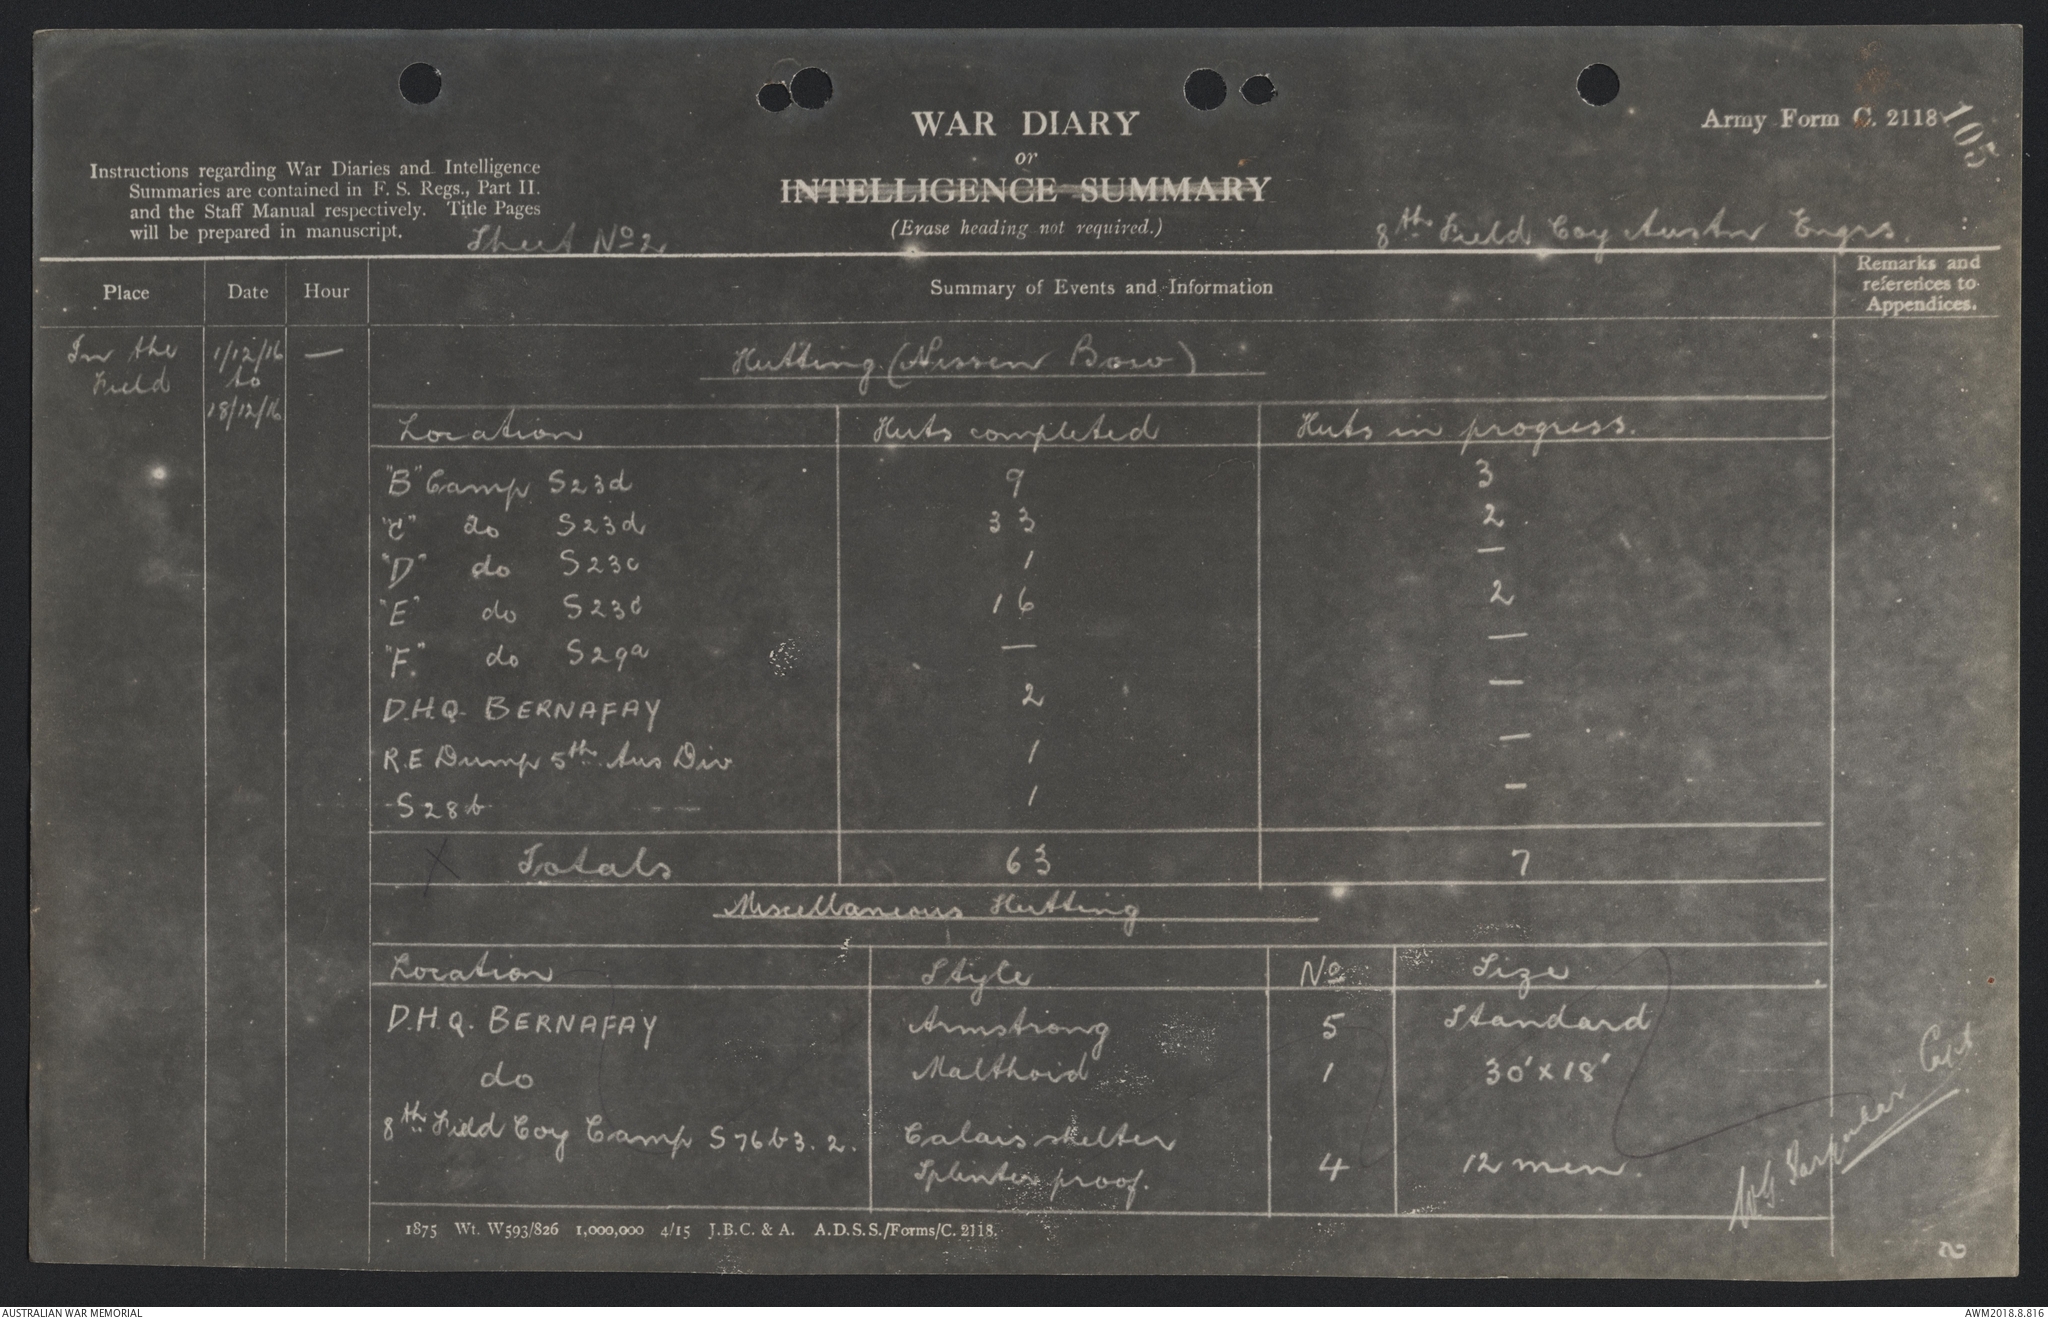 WAR DIARY
or
INTELLIGENCE SUMMARY
(Erase heading not required.)
Army Form C. 2118
105
Instructions regarding War Diaries and Intelligence
Summaries are contained in F. S. Regs., Part II.
and the Staff Manual respectively. Title Pages
will be prepared in manuscript.
Sheet No 2
8th Field Coy Austn Engrs.
Place Date Hour Summary of Events and Information Remarks and
references to
Appendices.
In the 1/12/16 —
Field to
18/12/16
Hutting (Nissen Bow)
Location Huts completed Huts in progress.
"B" Camp S23d 9 3
"C" do S23d 33 2
"D" do S23c 1 —
"E" do S23c 16 2
"F." do S29a — —
D.H.Q. BERNAFAY 2 —
R.E Dump 5th Aus Div 1 —
S28b 1 —
X Totals 63 7
Miscellaneous Hutting
Location Style No Size
D.H.Q. BERNAFAY Armstrong 5 Standard
do Malthoid 1 30'x18'
8th Field Coy Camp S76b3.2. Calais shelter
Splinter proof. 4 12 men.
Capt
1875 Wt. W593/826 1,000,000 4/15 J.B.C. & A. A.D.S.S./Forms/C. 2118.
2
AUSTRALIAN WAR MEMORIAL
AWM2018.8.816